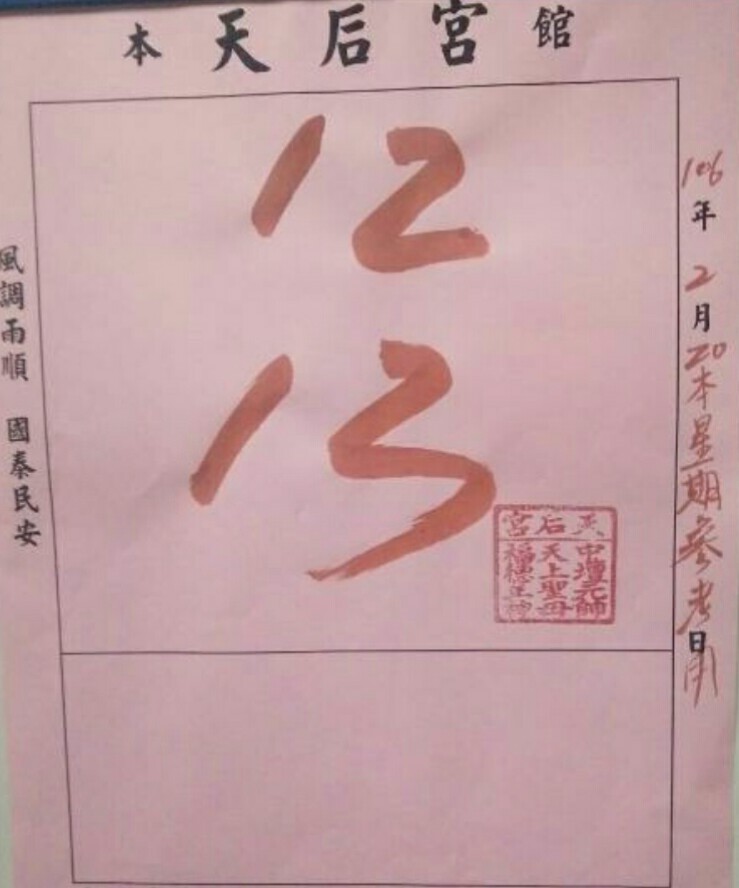 本天后宮館
106年2月20本星期參考日用
12
13
天后宮
中壇元帥
天上聖母
福德正神
風調雨順 國泰民安